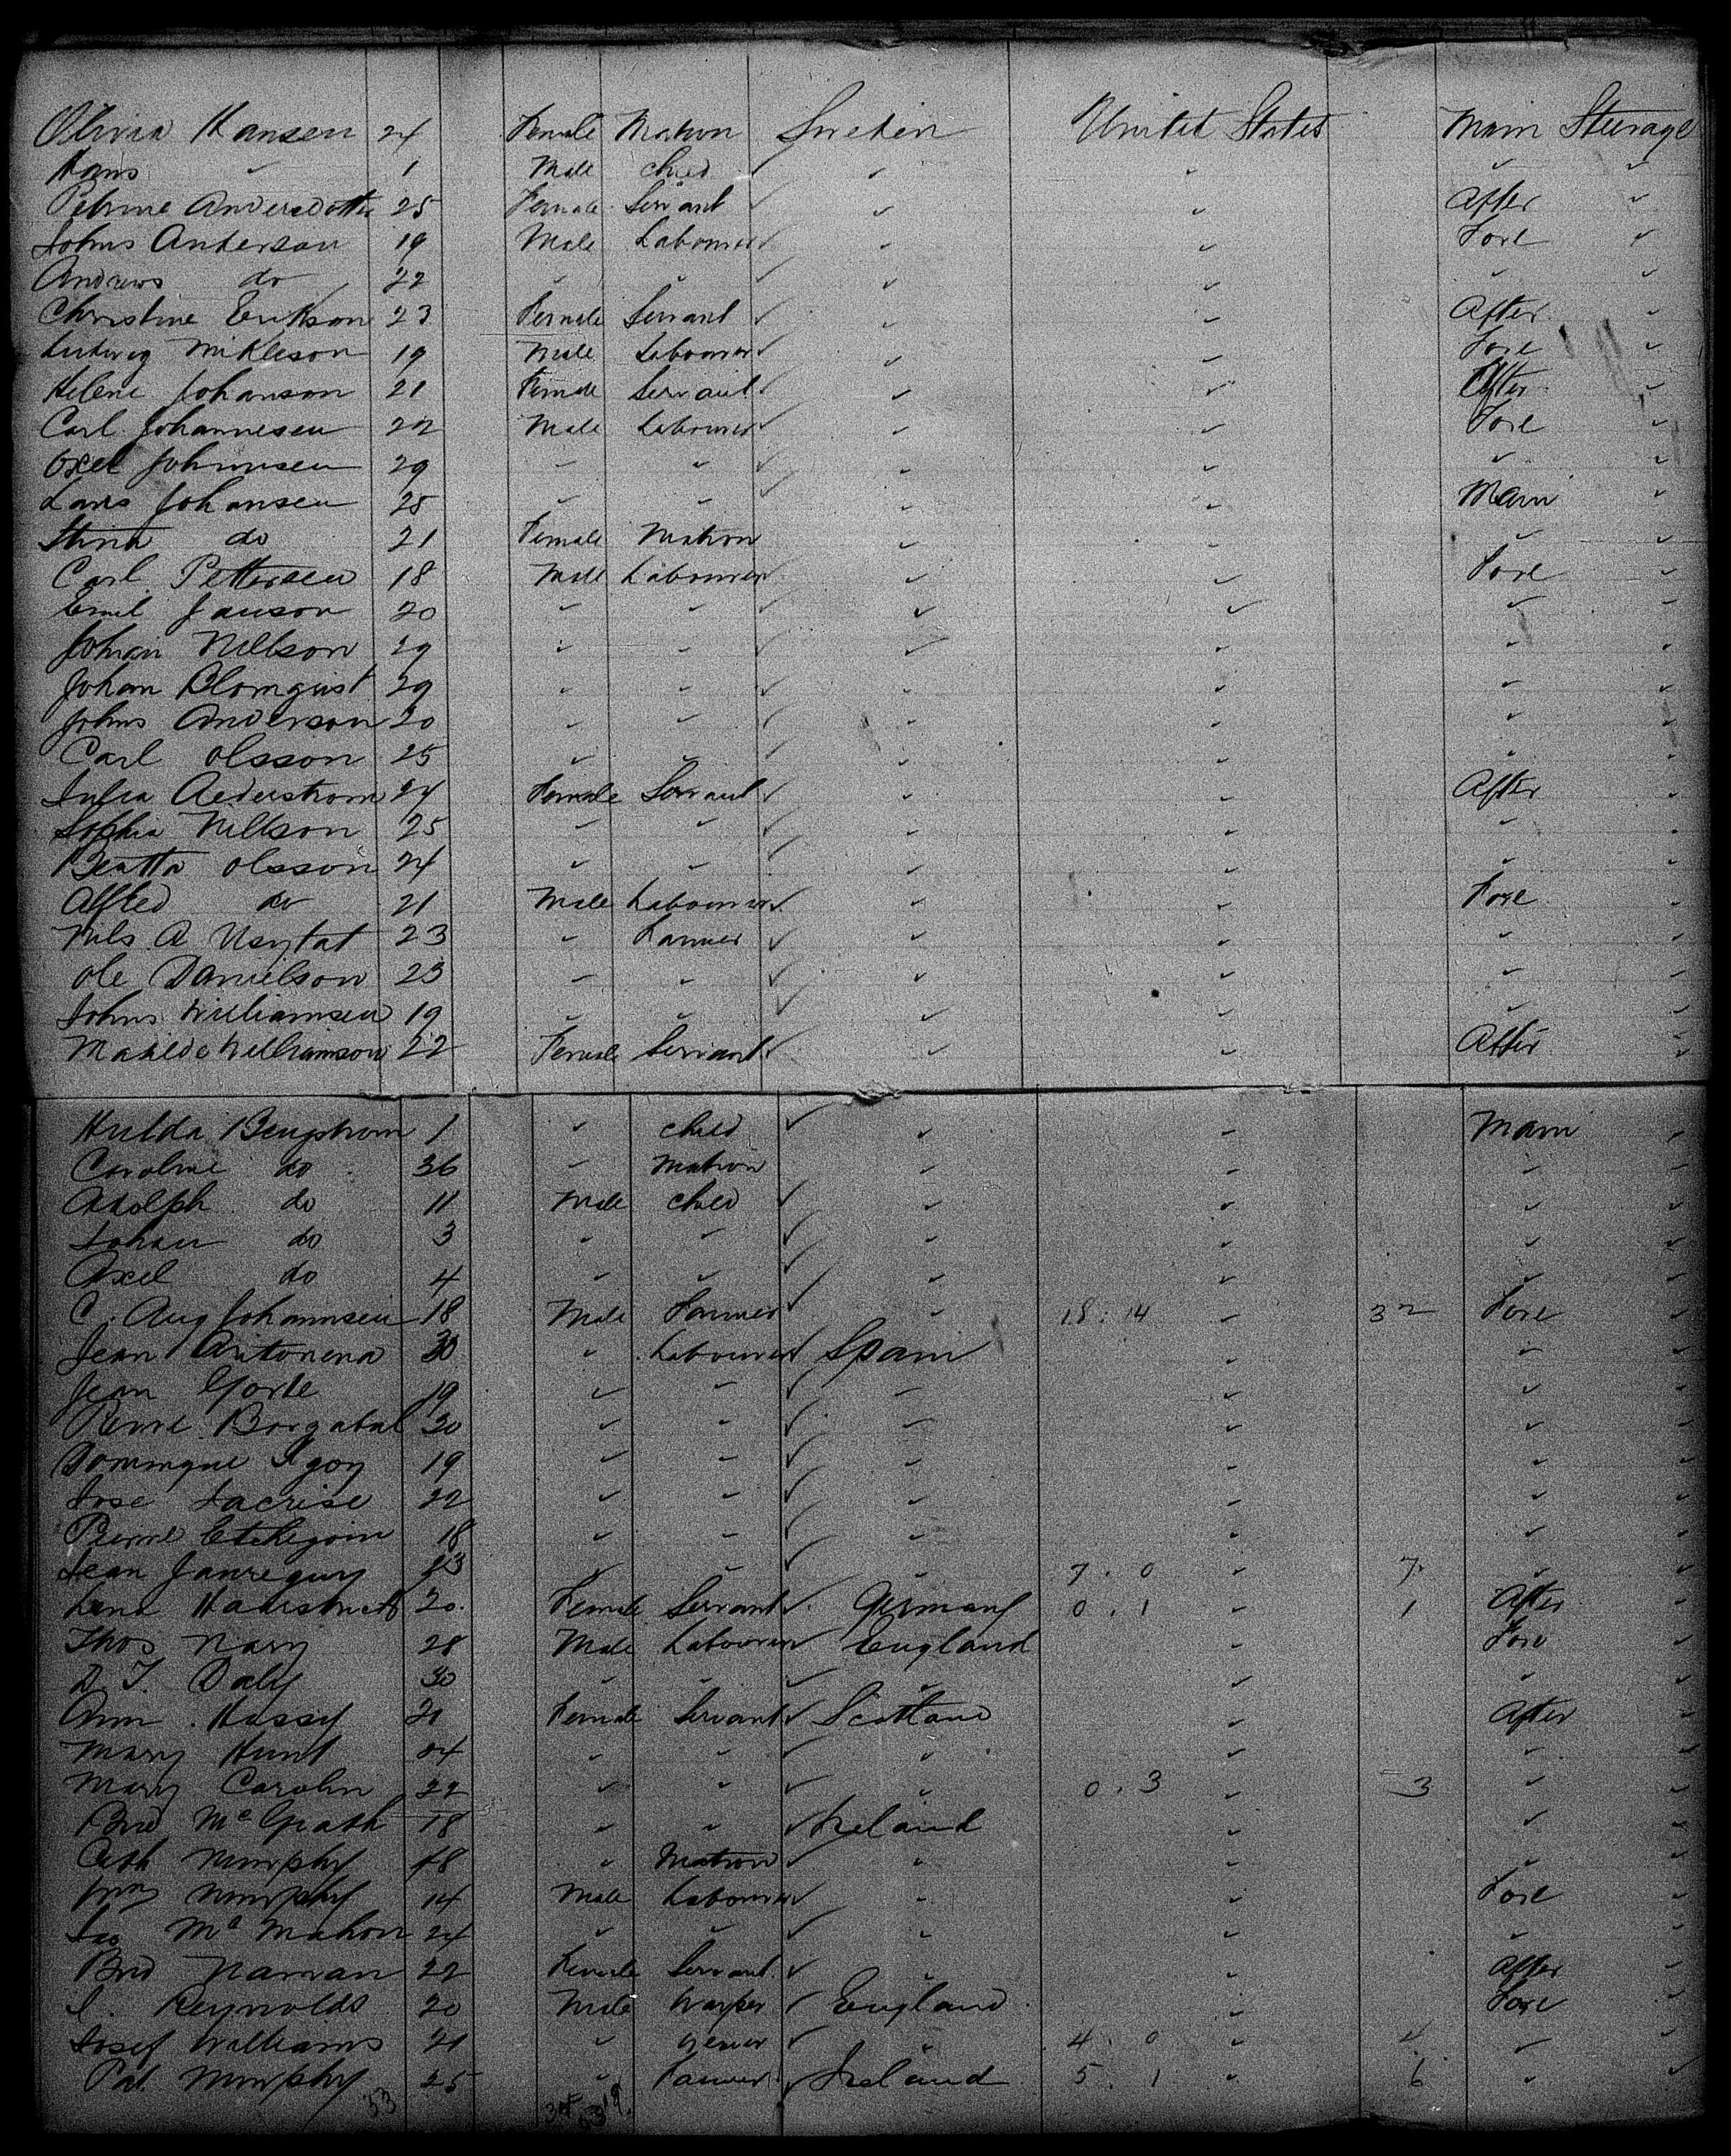 Olivia Hansen 24 Female Matron Sweden United States Main Steerage
Hans " 1 Male Child " " " "
Petrine Andersdotter 25 Female Servant " " After "
Johns Anderson 19 Male Labourer " " Fore "
Andrews do 22 " " " " " "
Christine Erikson 23 Female Servant " " After "
Ludwig Nikleson 19 Male Labourer " " Fore "
Helene Johanson 21 Female Servant " " After "
Carl Johannesen 22 Male Labourer " " Fore "
Oxel Johnnsen 29 " " " " " "
Lars Johansen 25 " " " " Main "
Stina do 21 Female Matron " " " "
Carl Pettersen 18 Male Labourer " " Fore "
Emil Janson 20 " " " " " "
Johan Nillson 29 " " " " " "
Johan Blomquist 29 " " " " " "
Johns Anderson 20 " " " " " "
Carl Olsson 25 " " " " " "
Julia Aederstrom 24 Female Servant " " After "
Sophia Nillson 25 " " " " " "
Beatta Olsson 24 " " " " " "
Alfred do 21 Male Labourer " " Fore "
Nils A 23 " Farmer " " " "
Ole Danielson 23 " " " " " "
Johns Williamsen 19 " " " " " "
Matilde Williamson 22 Female Servant " " After "
Hulda Bengstrom 1 " Child " " Main "
Caroline do 36 " Matron " " " "
Adolph do 11 Male Child " " " "
Johan do 3 " " " " " "
Axel do 4 " " " " " "
C. Aug Johannsen 18 Male Farmer " 18 . 14 " 32 Fore "
Jean Antonena 30 " Labourer Spain " " "
Jean Gorte 19 " " " " " "
Pierre Borgabal 30 " " " " " "
Dominique 19 " " " " " "
Jose Lacrise 22 " " " " " "
Pierre Etchegoin 18 " " " " " "
Jean Janreguy " " " 7 . 0 " 7 " "
Lena 20 Female Servant Germany 0 . 1 " 1 After "
Thos Nary 28 Male Labourer England " Fore "
D. T. Daly 30 " " " " " "
Ann Hassy 21 Female Servant Scotland " After "
Mary Hunt 24 " " " " " "
Mary Carolin 22 " " " 0 . 3 " 3 " "
Brid McGrath 18 " " Ireland " " "
Cath Murphy 48 " Matron " " " "
Wm Murphy 14 Male Labourer " " Fore "
Jas McMahon 24 " " " " " "
Brid Narran 22 Female Servant " " After "
J. Reynolds 20 Male Warper England " Fore "
Josef Williams 21 " " 4 . 0 " 4 " "
Pat Murphy 25 " Farmer Ireland 5 . 1 " 6 " "
53 34 19